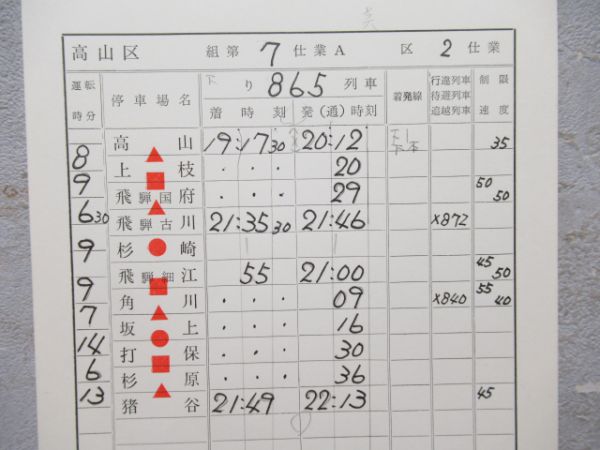 高山区 組第 7 仕業A 区 2 仕業
運転時分 停車場名 下り 865 列車 着発線 行違列車 待避列車 追越列車 制限速度
着時刻 発(通)時刻
高山 19:17 30 20:12 下1 下本 35
8
上枝 ・ ・ ・ 20
9
飛騨国府 ・ ・ ・ 29 50 50
6 30
飛騨古川 21:35 30 21:46 ×872
9
杉崎
飛騨細江 55 21:00 45 50
9
角川 ・ ・ ・ 09 ×840 55 40
7
坂上 ・ ・ ・ 16
14
打保 ・ ・ ・ 30
6
杉原 ・ ・ ・ 36
13
猪谷 21:49 22:13 45